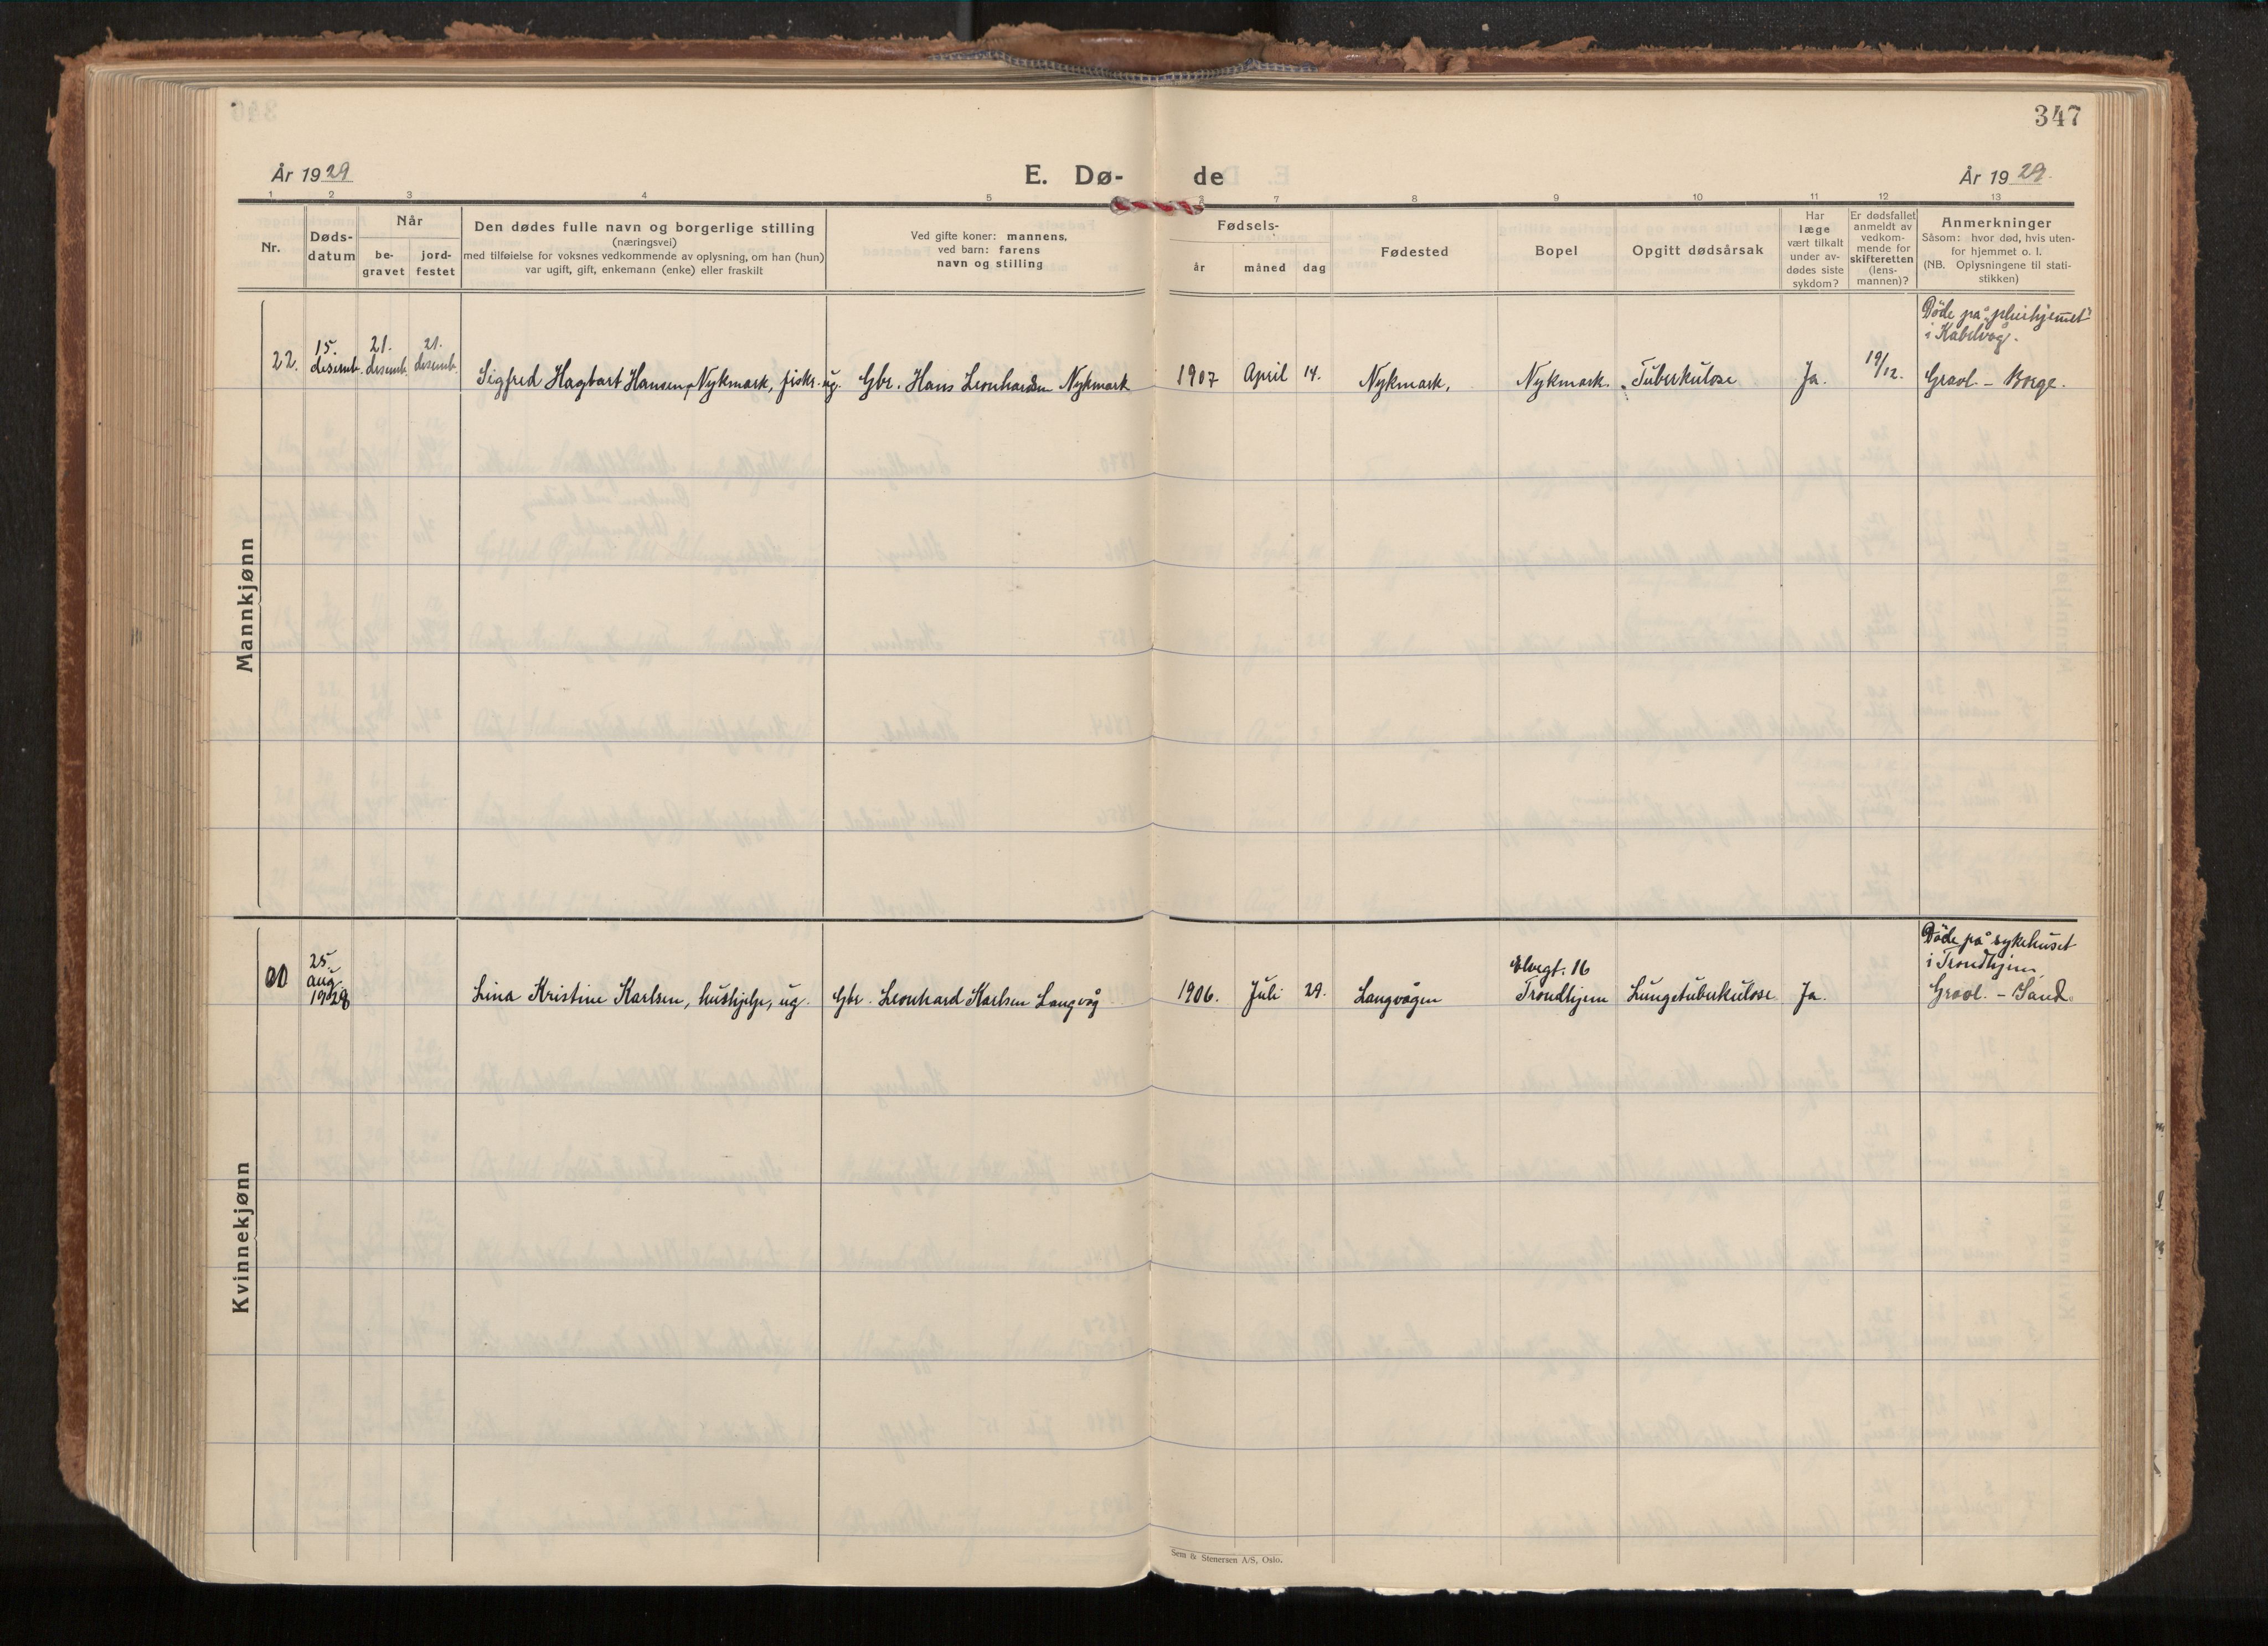 347
År 1929
E. Dø-
de
År 1929.
1 2 3 4 5 6 7 8 9 10 11 12 13
Nr.
Døds-
datum
Når
be-
gravet
jord-
festet
Den dødes fulle navn og borgerlige stilling
(næringsvei)
med tilføielse for voksnes vedkommende av oplysning, om han (hun)
var ugift, gift, enkemann (enke) eller fraskilt
Ved gifte koner: mannens,
ved barn: farens
navn og stilling
Fødsels-
år måned dag
Fødested
Bopel
Opgitt dødsårsak
Har
læge
vært tilkalt
under av-
dødes siste
sykdom?
Er dødsfallet
anmeldt av
vedkom-
mende for
skifteretten
(lens-
mannen)?
Anmerkninger
Såsom: hvor død, hvis uten-
for hjemmet o. l.
(NB. Oplysningene til stati-
stikken)
Mannkjønn
22.
15.
desemb.
21.
desemb.
21.
desemb.
Sigfred Hagbart Hansen, Nykmark, fisker. ug.
Gbr. Hans Leonhardsen Nykmark
1907 April 14.
Nykmark,
Nykmark.
Tuberkulose
Ja.
19/12.
Døde på "pleiehjemmet"
i Kabelvåg.
Gravl. - Borge.
Kvinnekjønn
20
25.
aug.
1928
Lina Kristine Karlsen, hushjelp, ug.
Gbr. Leonhard Karlsen Langvåg
1906. Juli 29.
Langvågen
Elvegt. 16
Trondhjem
Lungetuberkulose.
Ja.
Døde på sykehuset
i Trondhjem.
Gravl. - Sand.
Sem & Stenersen A/S, Oslo.